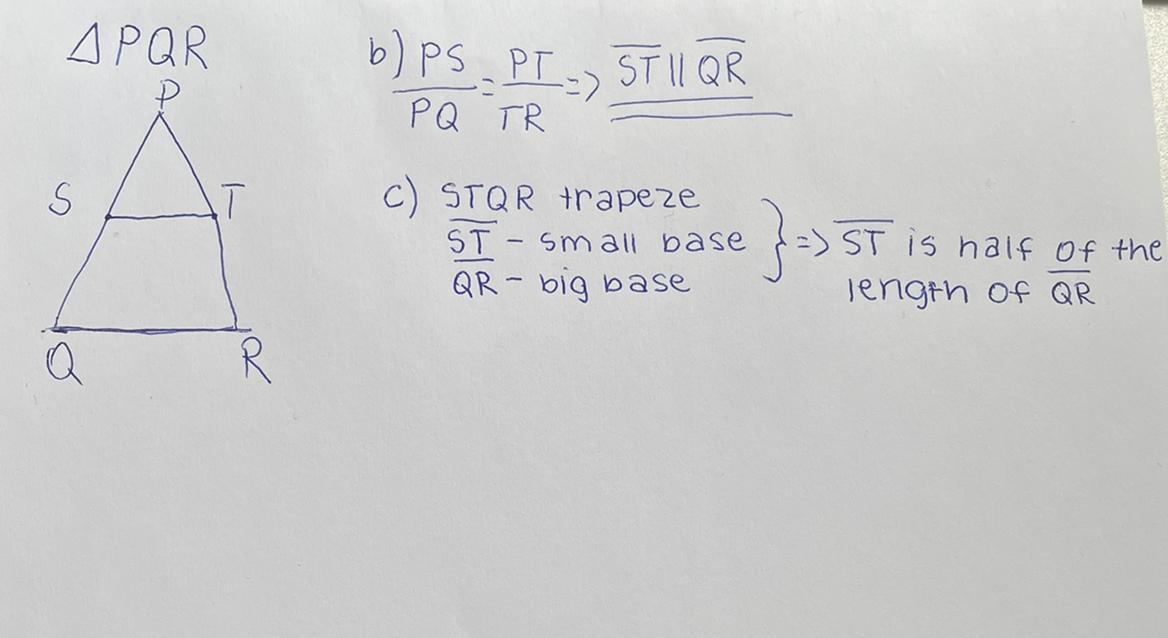 △PQR
P
S T
Q R
b) PS/PQ = PT/TR => S̅T̅ || Q̅R̅
c) STQR trapeze
S̅T̅ - small base
Q̅R̅ - big base
} => S̅T̅ is half of the
length of Q̅R̅